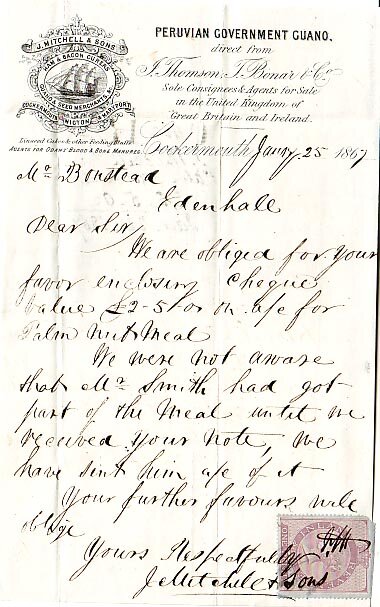 J. MITCHELL & SONS
HAM & BACON CURERS
SEED MERCHANTS, &c
COCKERMOUTH WIGTON & MARYPORT
Linseed Cakes & other Feeding Stuffs
AGENTS FOR ODAMS' BLOOD & BONE MANURES
PERUVIAN GOVERNMENT GUANO,
direct from
J. Thomson, T. Bonar & Co
Sole Consignees & Agents for Sale
in the United Kingdom of
Great Britain and Ireland.
Cockermouth Jany 25 1867
Mr Boustead
Edenhall
Dear Sir
We are obliged for your
favor enclosing Cheque
Value £2-5-0 on a/c for
Palm Nut Meal
We were not aware
that Mr Smith had got
part of the Meal until we
received your note, we
have sent him a/c of it
Your further favours will
oblige
Yours Respectfully
J Mitchell & Sons